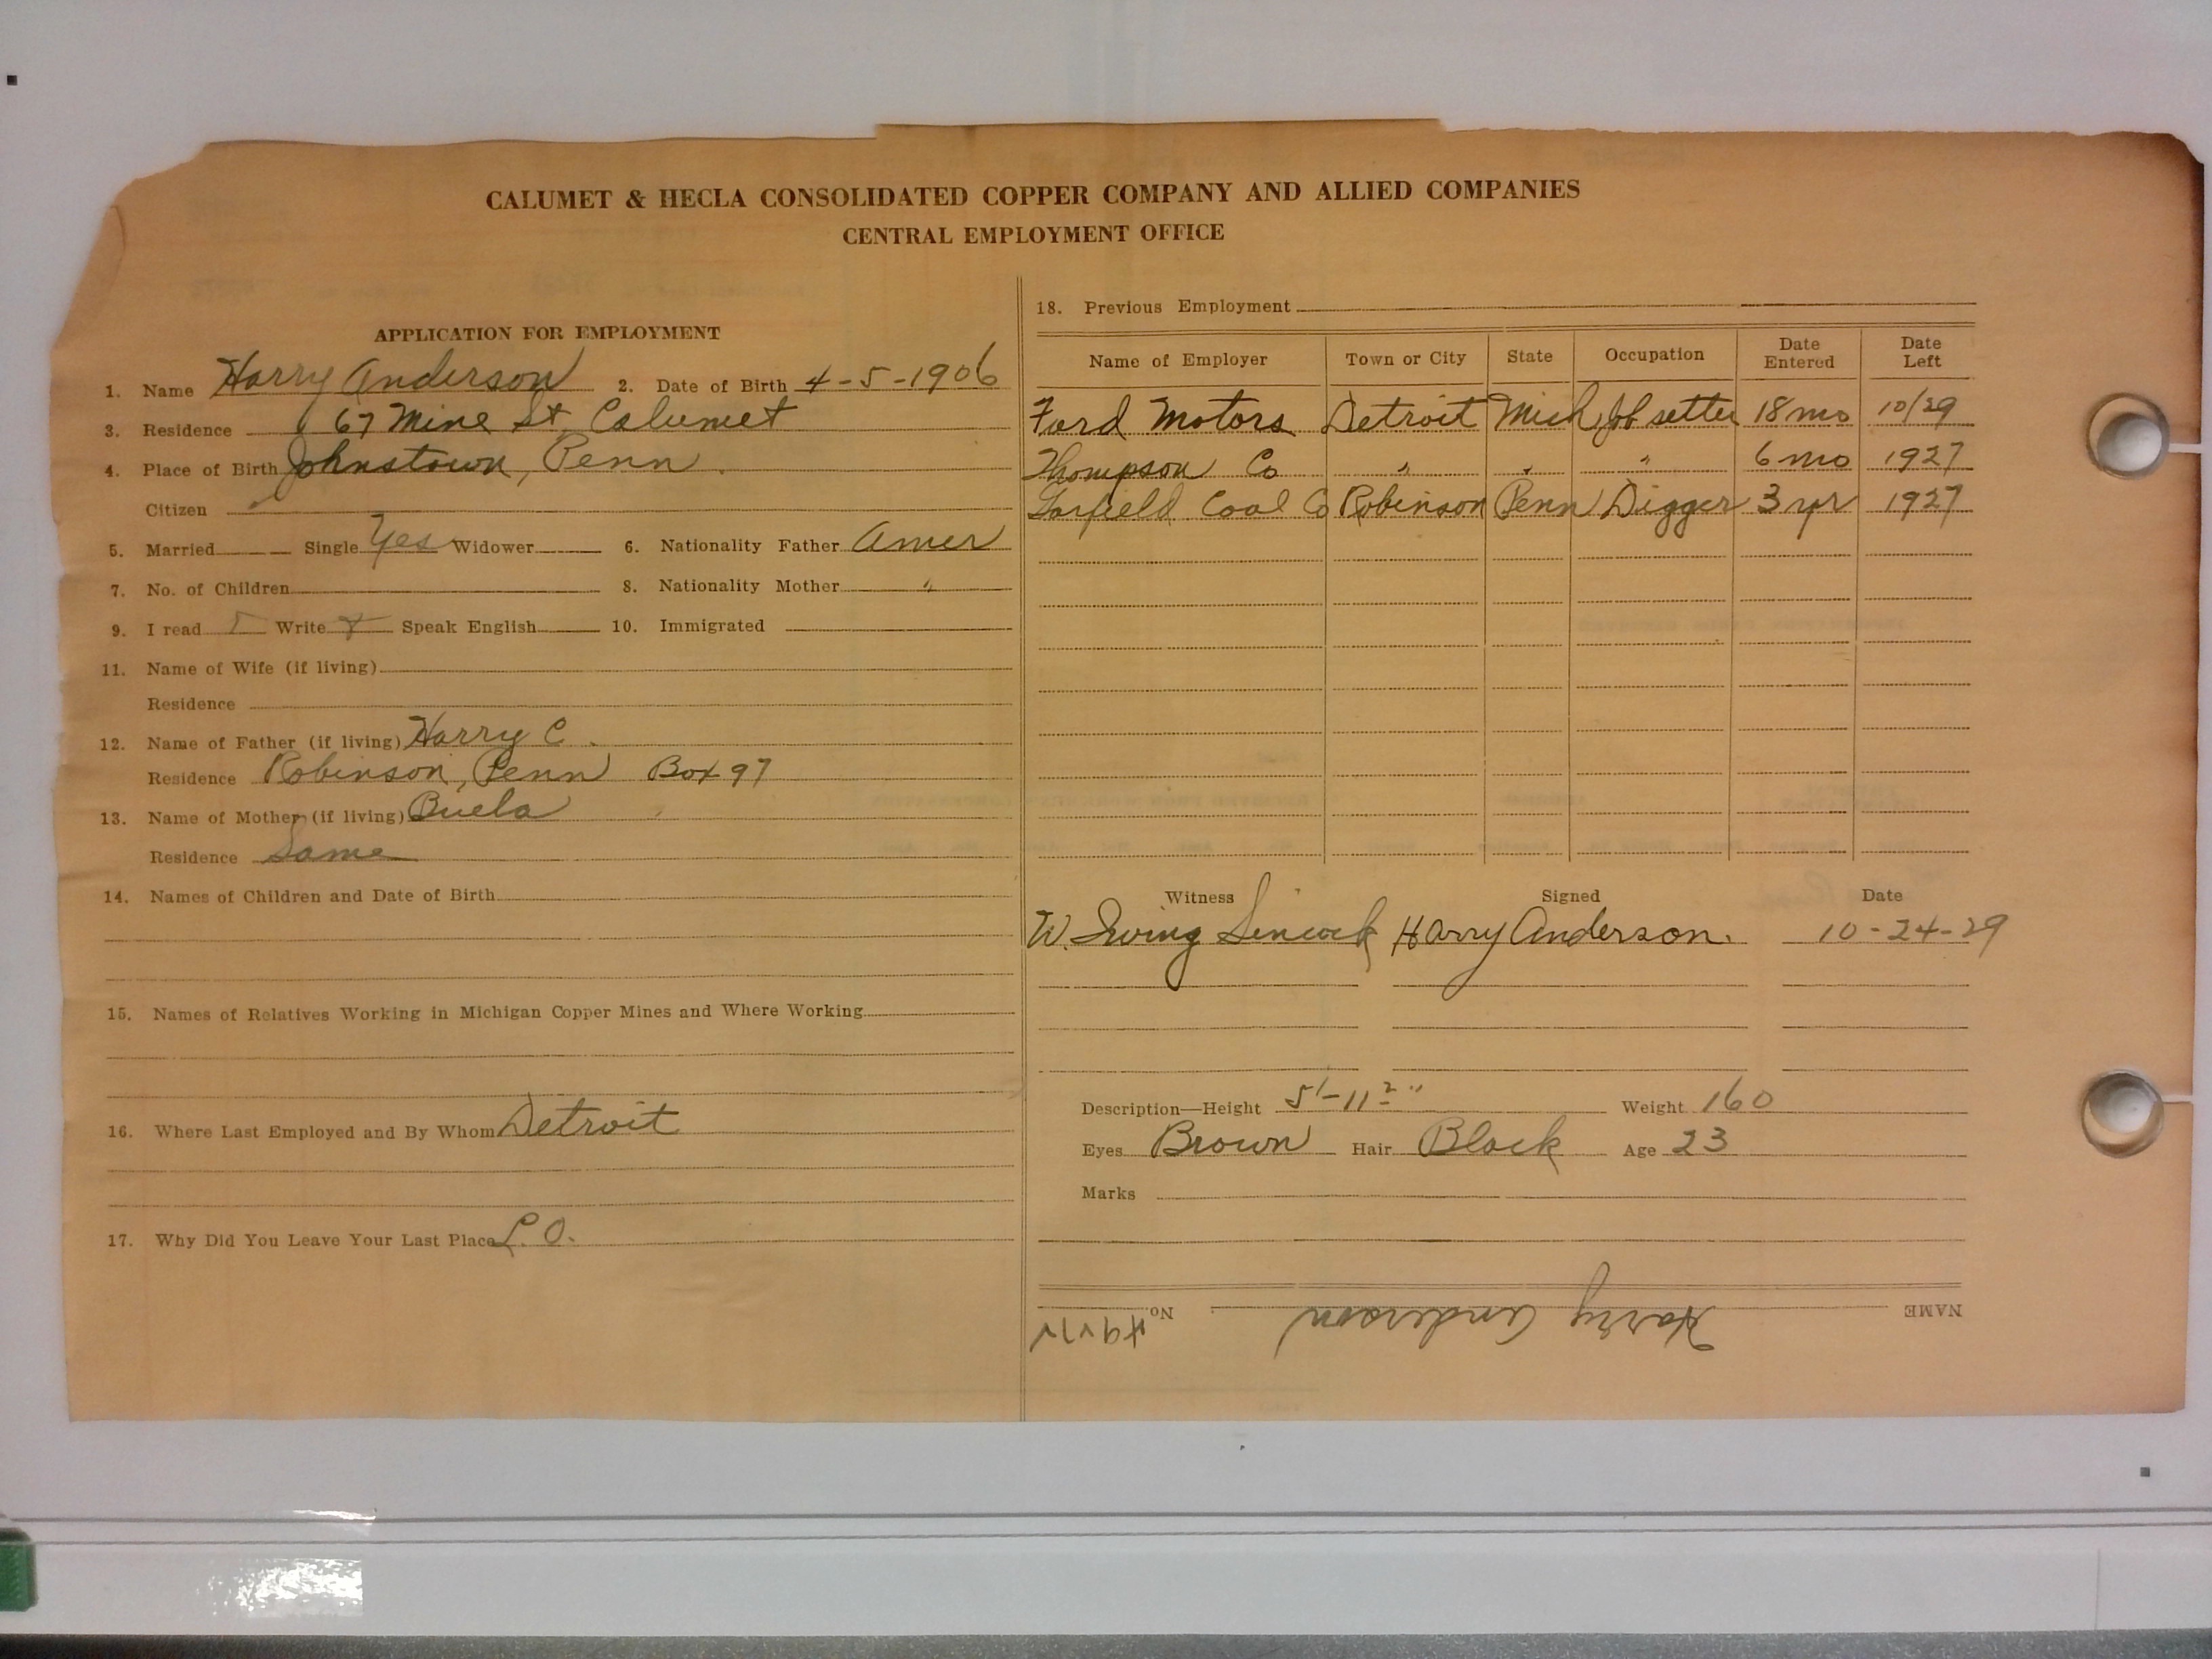 CALUMET & HECLA CONSOLIDATED COPPER COMPANY AND ALLIED COMPANIES
CENTRAL EMPLOYMENT OFFICE
APPLICATION FOR EMPLOYMENT
1. Name Harry Anderson 2. Date of Birth 4-5-1906
3. Residence 67 Mine St, Calumet
4. Place of Birth Johnstown, Penn.
Citizen
5. Married Single Yes Widower 6. Nationality Father Amer
7. No. of Children 8. Nationality Mother "
9. I read Write Speak English 10. Immigrated
11. Name of Wife (if living)
Residence
12. Name of Father (if living) Harry C.
Residence Robinson, Penn Box 97
13. Name of Mother (if living) Buela
Residence Same
14. Names of Children and Date of Birth
15. Names of Relatives Working in Michigan Copper Mines and Where Working
16. Where Last Employed and By Whom Detroit
17. Why Did You Leave Your Last Place L.O.
18. Previous Employment
Name of Employer Town or City State Occupation Date Entered Date Left
Ford Motors Detroit Mich Job setter 18 mo 10/29
Thompson Co " " " 6 mo 1927
Garfield Coal Co Robinson Penn Digger 3 yr 1927
Witness Signed Date
W. Irving Sincock Harry Anderson. 10-24-29
Description—Height 5'-11 2" Weight 160
Eyes Brown Hair Black Age 23
Marks
NAME Harry Anderson No.